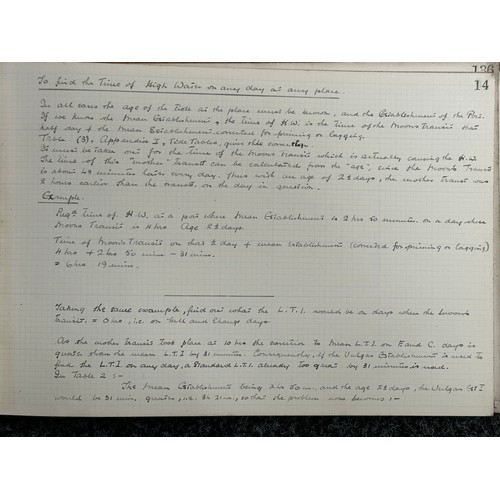 126
14
To find the Time of High Water on any day at any place.
In all cases the age of the Tide at the place must be known, and the Establishment of the Port.
If we know the Mean Establishment, the time of H.W. is the Time of the Moon's Transit that
half day + the Mean Establishment corrected for priming or lagging.
Table (3), Appendix I, Tide Tables, gives this corrn.
It must be taken out for the time of the Moon's transit which is actually causing the H.W.
The time of this "mother" transit can be calculated from the "age", since the Moon's Transit
is about 48 minutes later every day. Thus with an age of 2½ days, the mother transit was
2 hours earlier than the transit, on the day in question.
Example.
Reqd Time of H.W. at a port where Mean Establishment is 2 hrs 50 minutes on a day when
Moon's Transit is 4 hrs Age 2½ days.
Time of Moon's Transit on that ½ day + mean Establishment (corrected for priming or lagging)
4 hrs + 2 hrs 50 mins - 31 mins.
= 6 hrs 19 mins.
Taking the same example, find out what the L.T.I. would be on days when the Moon's
Transit = 0 hrs, i.e. on Full and Change days.
As the mother transit took place at 10 hrs the correction to Mean L.T.I. on F and C. days is
greater than the mean L.T.I by 31 minutes. Consequently, if the Vulgar Establishment is used to
find the L.T.I. on any day, a Standard L.T.I. already too great by 31 minutes is used.
In Table 2 :-
The Mean Establishment being 2 hrs 50 m. and the age 2½ days, the Vulgar Est
would be 31 min. greater, i.e. 3h 21m., so that the problem now becomes :-